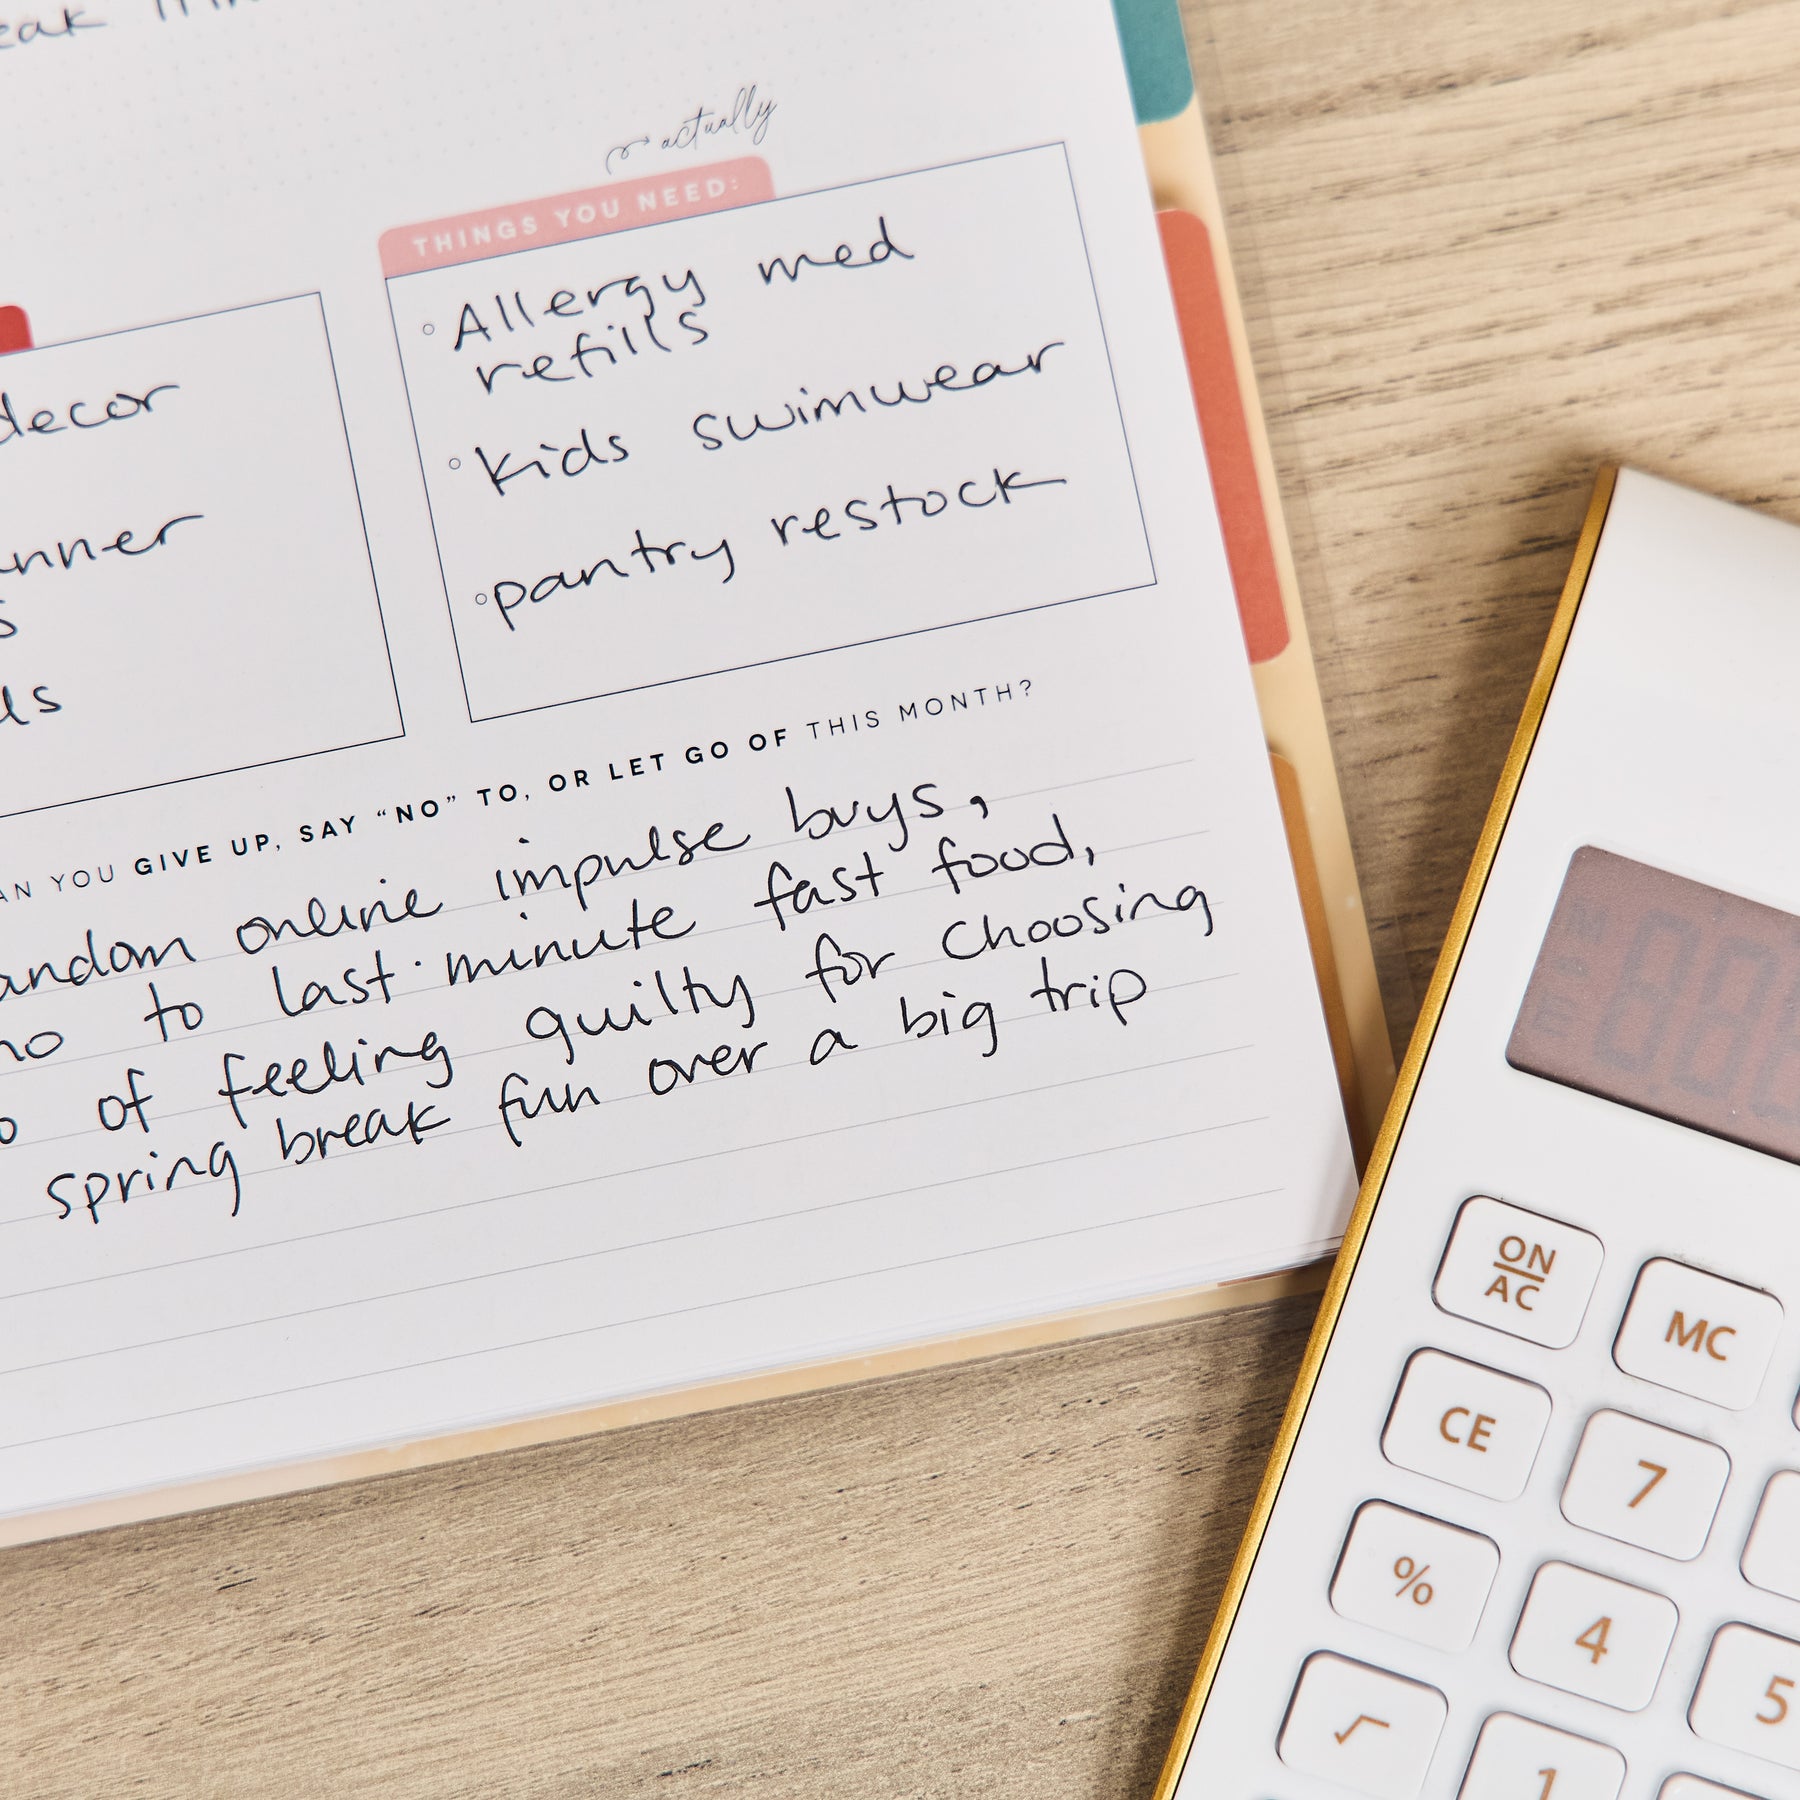 actually
THINGS YOU NEED:
Allergy med
refills
decor
kids swimwear
pantry restock
YOU GIVE UP, SAY “NO” TO, OR LET GO OF THIS MONTH?
online impulse buys,
to last-minute fast food,
of feeling guilty for choosing
spring break fun over a big trip
ON
AC
MC
CE
7
%
4
5
√
1